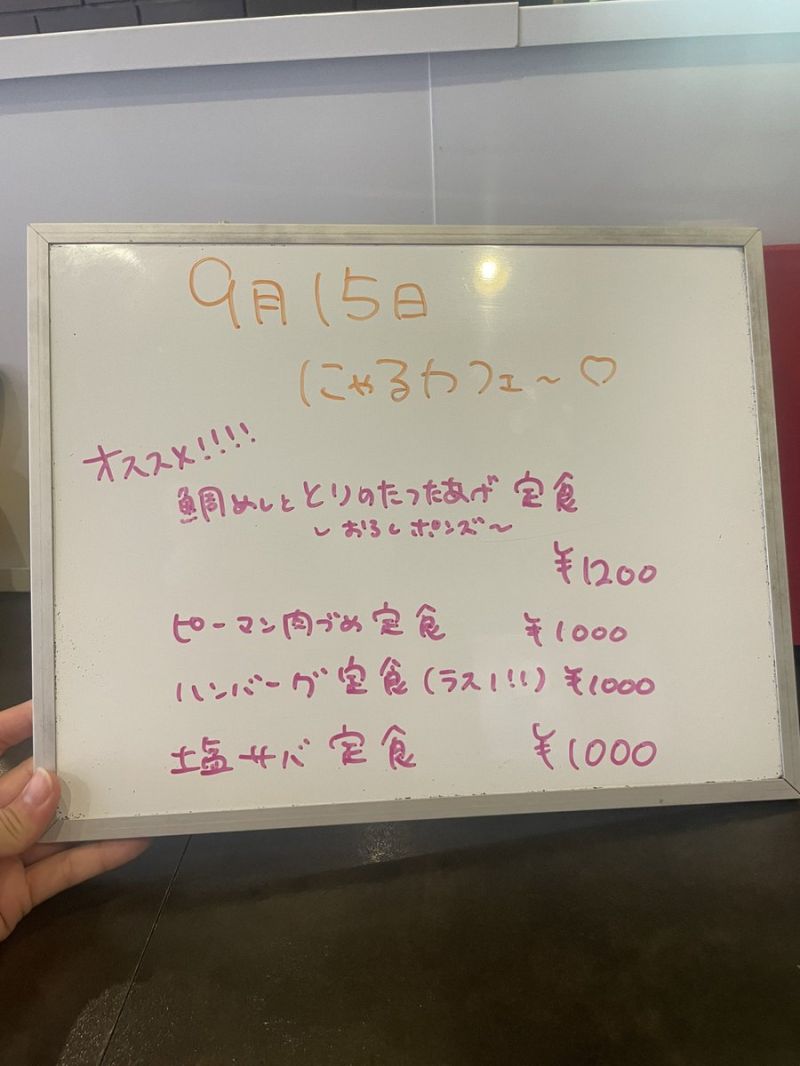 9月15日
にゃるカフェ〜♡
オススメ!!!!
鯛めしととりのたつたあげ定食
〜おろしポンズ〜
¥1200
ピーマン肉づめ定食 ¥1000
ハンバーグ定食(ラスト!!) ¥1000
塩サバ定食 ¥1000